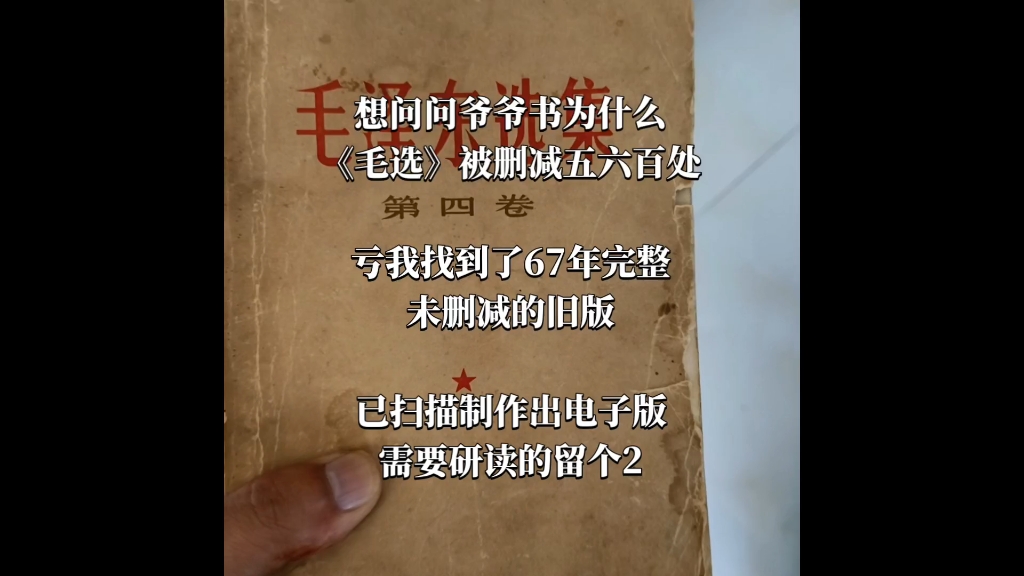 毛泽东选集
想问问爷爷书为什么
《毛选》被删减五六百处
第四卷
亏我找到了67年完整
未删减的旧版
已扫描制作出电子版
需要研读的留个2